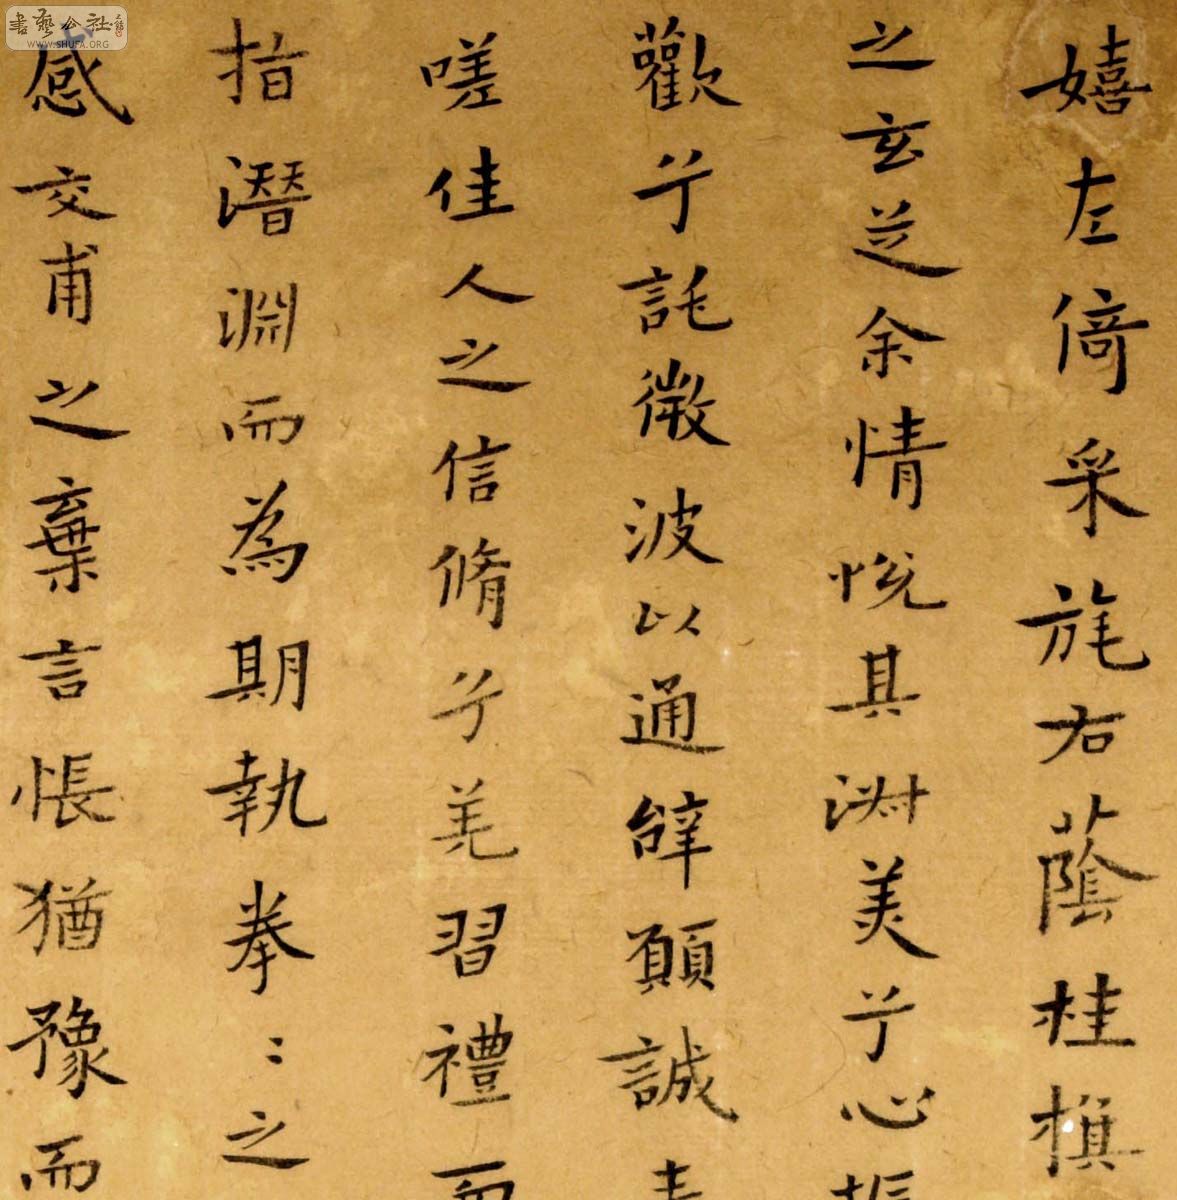 嬉左倚采旄右蔭桂旗
之玄芝余情悅其淑美兮心振
歡兮託微波以通辭願誠素
嗟佳人之信脩兮羌習禮而
指潛淵而為期執拳〻之
感交甫之棄言悵猶豫而
書藝公社
WWW.SHUFA.ORG